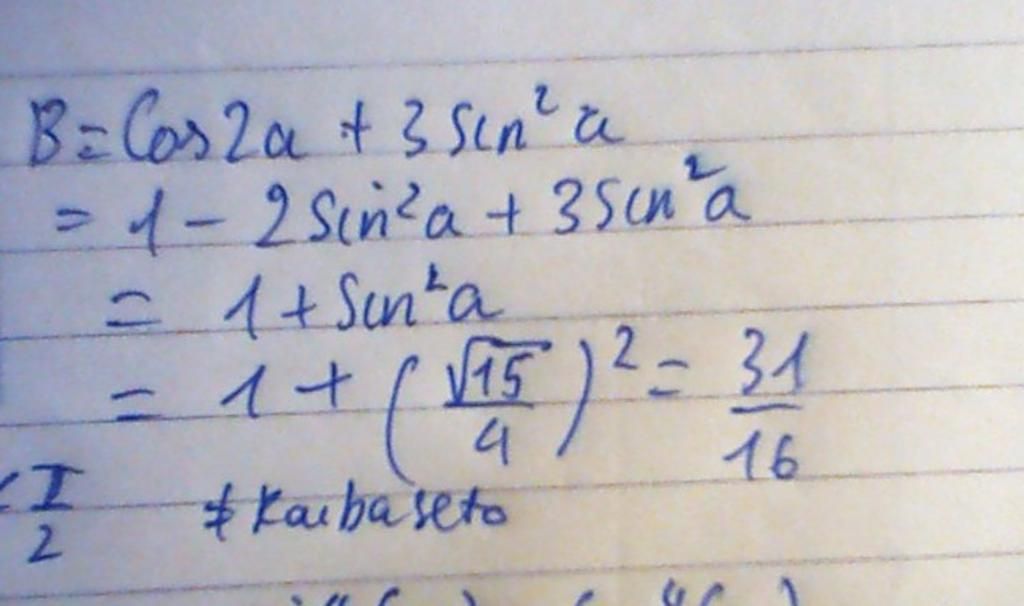 B = Cos2a + 3 Sin²a
= 1 - 2 Sin²a + 3 Sin²a
= 1 + Sin²a
= 1 + (√15/4)² = 31/16
< π/2
#Kaibaseto